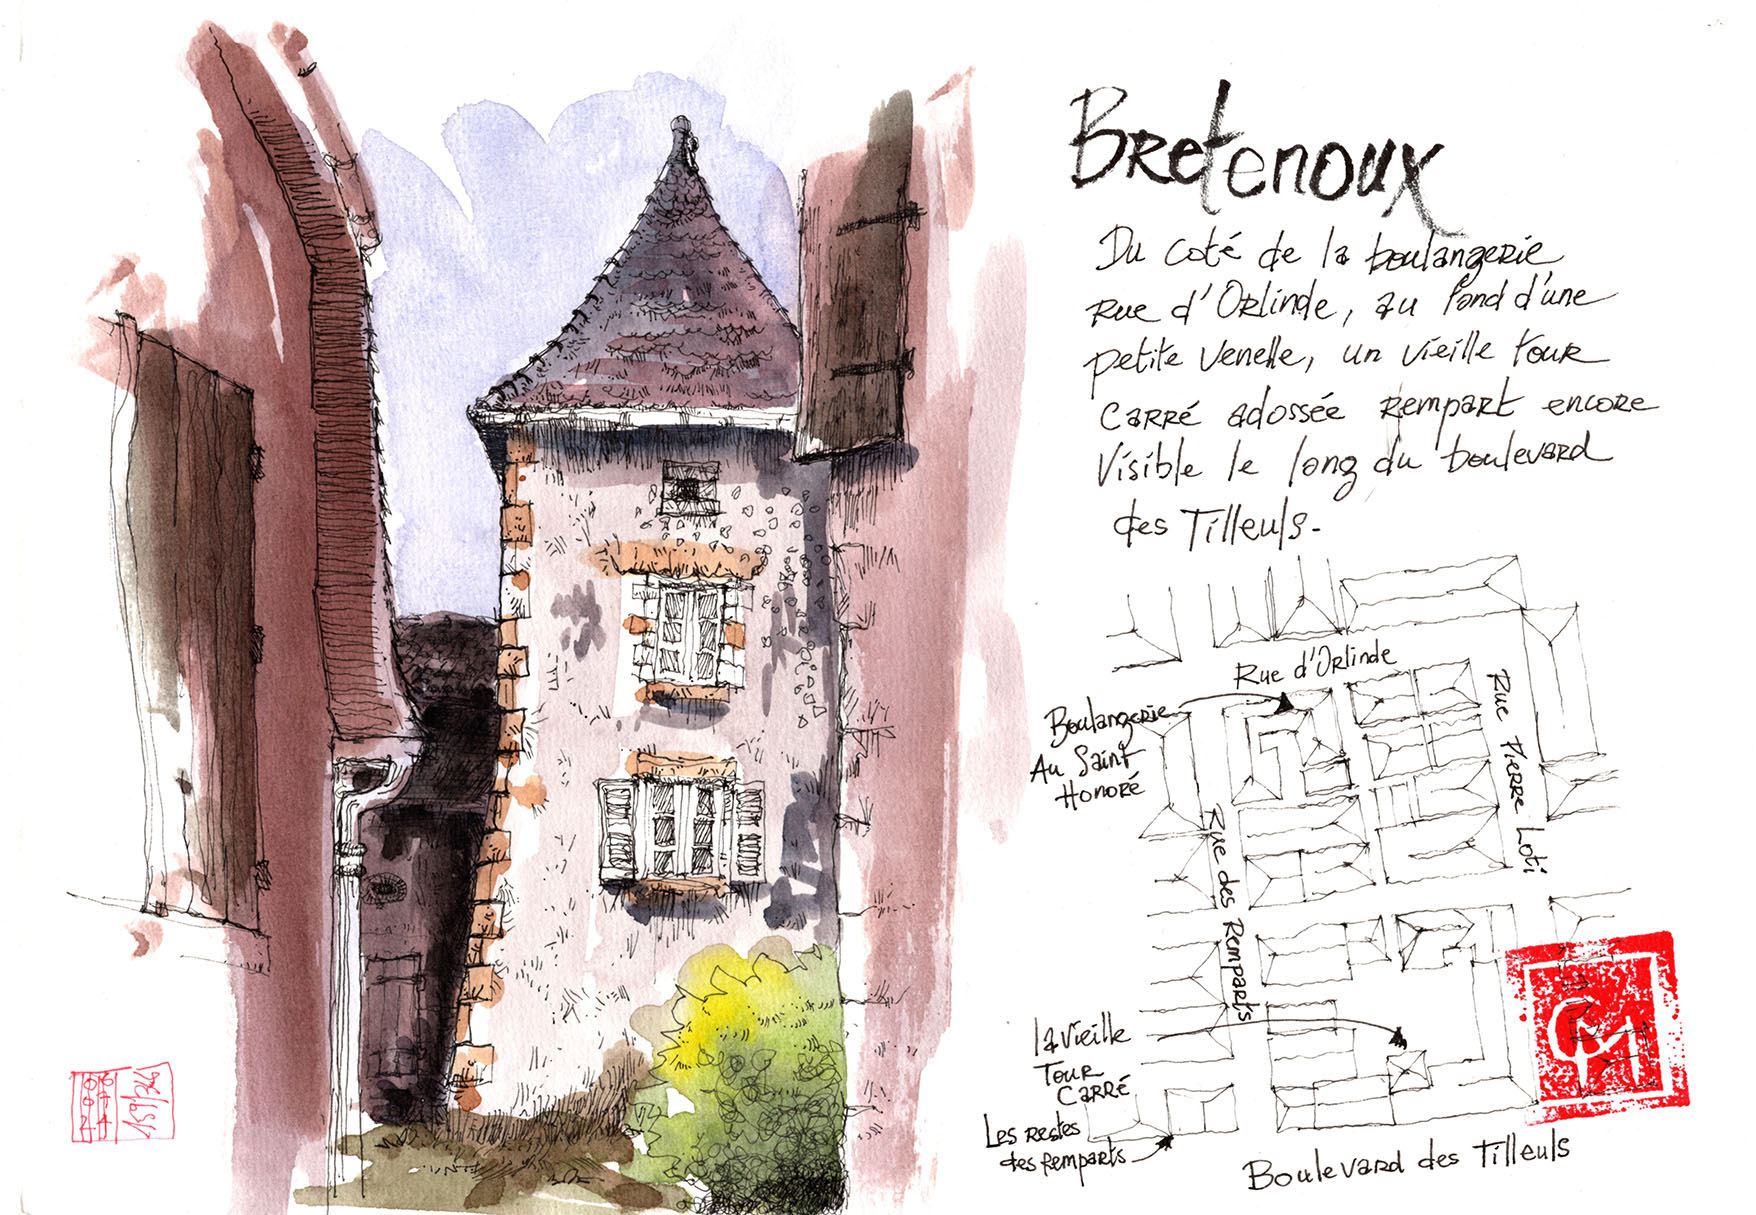 Bretenoux
Du coté de la boulangerie
Rue d'Orlinde, au fond d'une
petite venelle, un vieille tour
Carré adossée rempart encore
Visible le long du boulevard
des Tilleuls.
Rue d'Orlinde
Rue Pierre Loti
Boulangerie
Au Saint
Honoré
Rue des Remparts
la Vieille
Tour
Carré
Les restes
des remparts
Boulevard des Tilleuls